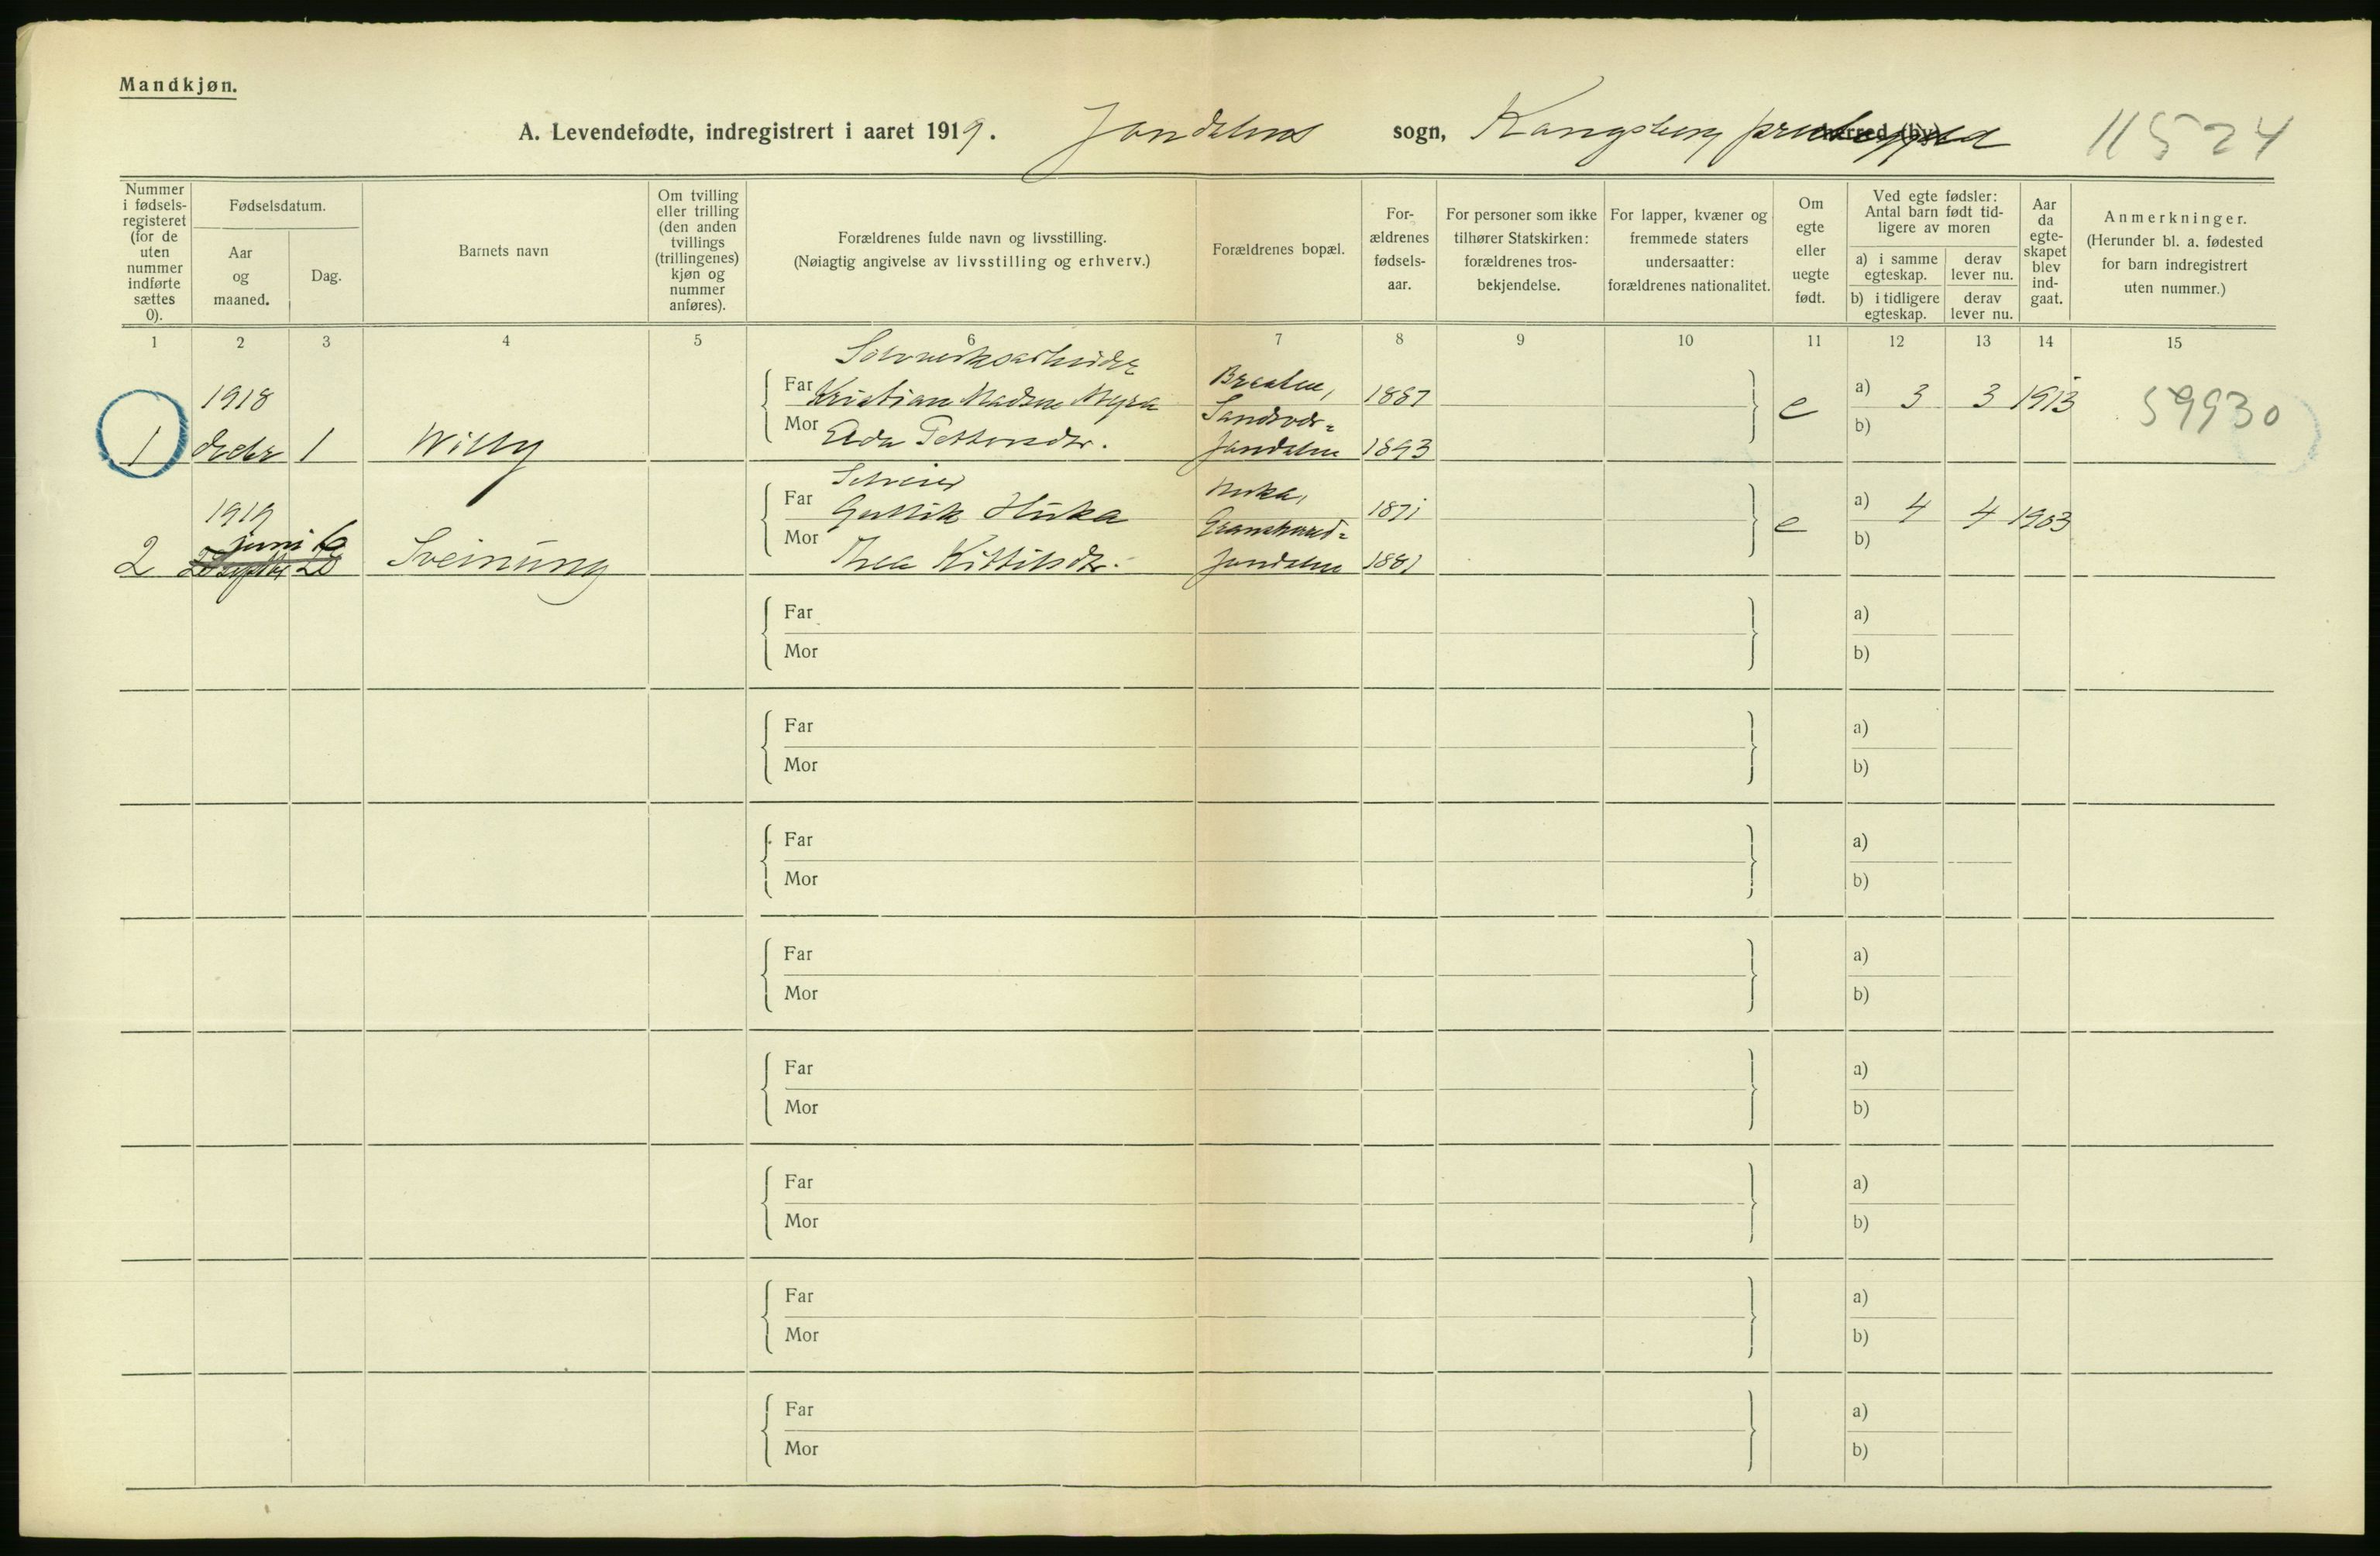 Mandkjøn.
A. Levendefødte, indregistrert i aaret 1919. Jondalens sogn, Kongsberg herred (by) 11524
Nummer i fødsels-registeret (for de uten nummer indførte sættes 0).
Fødselsdatum.
Aar og maaned.
Dag.
Barnets navn
Om tvilling eller trilling (den anden tvillings (trillingenes) kjøn og nummer anføres).
Forældrenes fulde navn og livsstilling.
(Nøiagtig angivelse av livsstilling og erhverv.)
Forældrenes bopæl.
For-ældrenes fødsels-aar.
For personer som ikke tilhører Statskirken: forældrenes tros-bekjendelse.
For lapper, kvæner og fremmede staters undersaatter: forældrenes nationalitet.
Om egte eller uegte født.
Ved egte fødsler: Antal barn født tid-ligere av moren
a) i samme egteskap.
derav lever nu.
b) i tidligere egteskap.
derav lever nu.
Aar da egte-skapet blev ind-gaat.
Anmerkninger.
(Herunder bl. a. fødested for barn indregistrert uten nummer.)
1 2 3 4 5 6 7 8 9 10 11 12 13 14 15
Sølvverksarbeider
1918 Far Kristian Madsen Myra Braaten, 1887 a) 3 3 1913 59930
Sandsvær=
1 decbr 1 Willy Mor Ada Pettersdtr. Jondalen 1893 e b)
1919 Far Gullik Huka Huka, 1871 a) 4 4 1903
juni 6 Gransherred=
2 Sveinung Mor Thea Kittilsdtr. Jondalen 1881 e b)
Far a)
Mor b)
Far a)
Mor b)
Far a)
Mor b)
Far a)
Mor b)
Far a)
Mor b)
Far a)
Mor b)
Far a)
Mor b)
Far a)
Mor b)